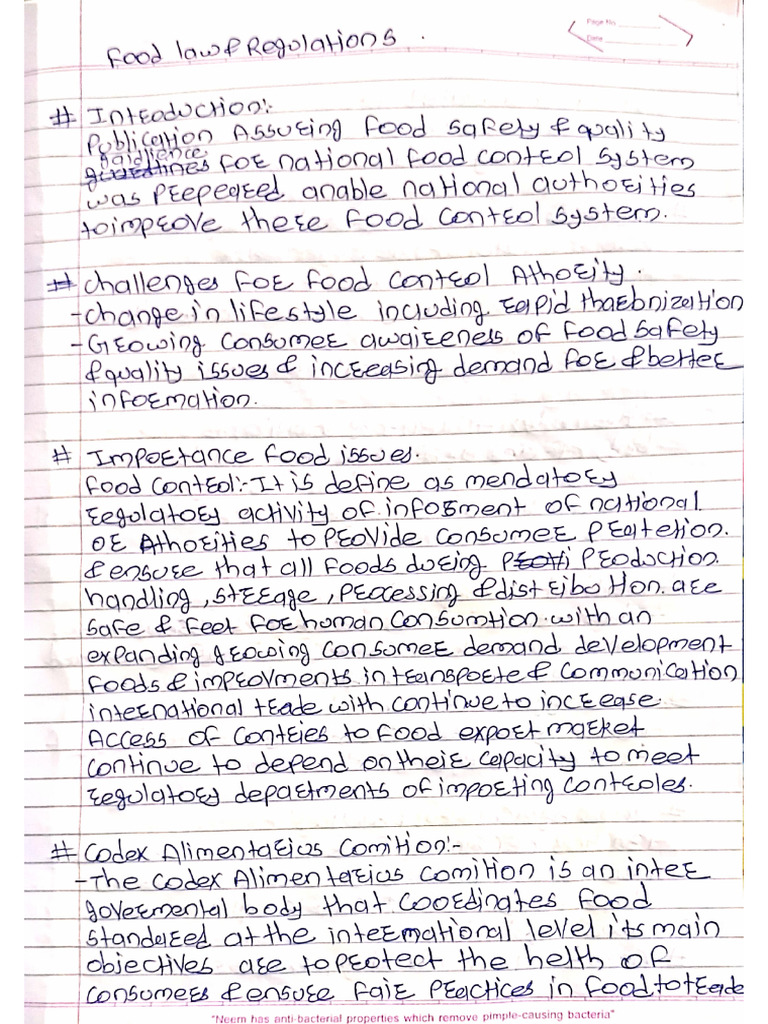 Page No.
Date
Food law & Regulations.
# Introduction:-
Publication Assuring food safety & quality
gaidlience
for national food control system
was prepered anable national authorities
to improve there food control system.
# challenges for food control Athority.
- change in lifestyle including rapid tharbnization
- Growing consumer awaireness of food safety
& quality issues & increasing demand for & better
information.
# Importance food issues.
food control:- It is define as mendatory
regulatory activity of inforsment of national
or Athorities to provide consumer
& ensure that all foods during production
handling, sterage, processing & distribution are
safe & feet for human consumtion. with an
expanding growing consumer demand development
foods & improvments in transporte & communication
international trade with continue to increase
Access of contries to food export market
continue to depend on their capacity to meet
regulatory departments of importing controles.
# Codex Alimentarius Comition:-
- The codex Alimentarius comition is an inter
govermental body that coordinates food
standered at the international level its main
objectives are to protect the helth of
consumers & ensure fair practices in food to trade
"Neem has anti-bacterial properties which remove pimple-causing bacteria"